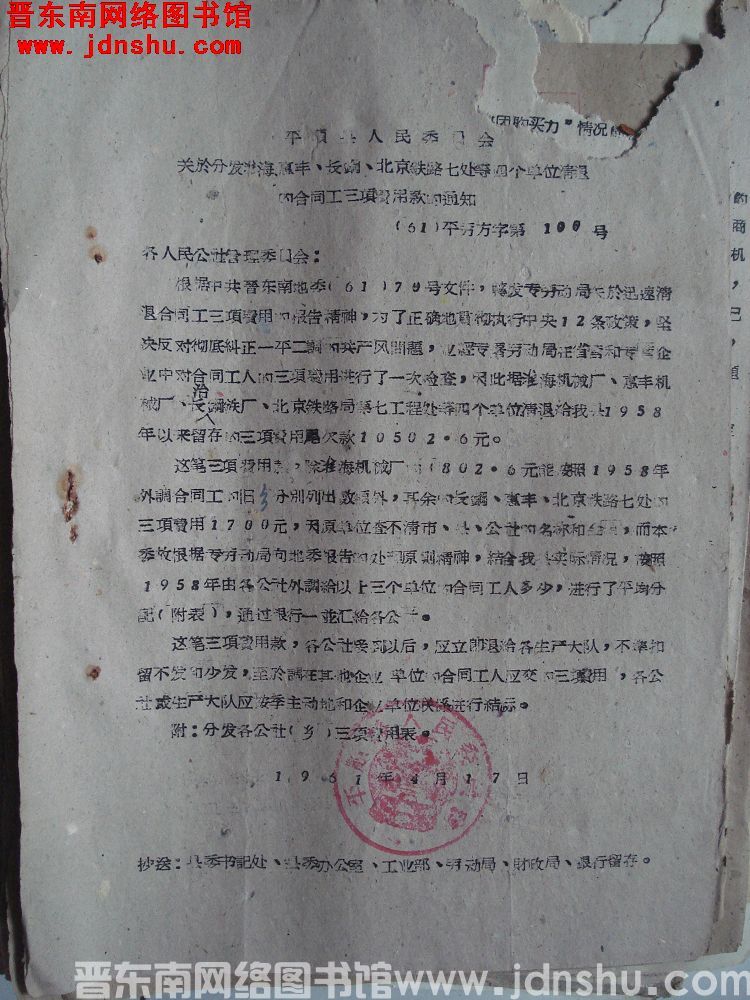 晋东南网络图书馆
www.jdnshu.com
团购买力"情况
平顺县人民委员会
关於分发淮海、惠丰、长钢、北京铁路七处等四个单位清退
的合同工三項費用款的通知
(61)平劳方字第100号
各人民公社管理委員会：
根据中共晋东南地委(61)70号文件，轉发专劳动局关於迅速清
退合同工三項費用的报告精神，为了正确地貫彻执行中央12条政策，坚
决反对彻底糾正一平二調的共产风問題，专署劳动局在省营和专营企
业中对合同工人的三項費用进行了一次检查，因此据淮海机械厂、惠丰机
械厂、长治鋼铁厂、北京铁路局第七工程处等四个单位清退给我县1958
年以来留存的三項費用尾欠款10502·6元。
这笔三項費用款，除淮海机械厂的802·6元能按照1958年
外調合同工的旧乡分別列出数額外，其余的长鋼、惠丰、北京铁路七处的
三項費用1700元，因原单位查不清市、县、公社的名称和，而本
委故根据专劳动局向地委报告的处理原則精神，結合我县实际情况，按照
1958年由各公社外調給以上三个单位的合同工人多少，进行了平均分
配(附表)，通过銀行一並汇給各公社。
这笔三項費用款，各公社接到以后，应立即退給各生产大队，不准扣
留不发和少发，至於調在其他企业单位的合同工人应交的三項費用，各公
社或生产大队应按季主动地和企业单位联系进行結示。
附：分发各公社(乡)三項費用表。
1961年4月17日
抄送：县委书記处、县委办公室、工业部、劳动局、財政局、銀行留存。
晋东南网络图书馆www.jdnshu.com